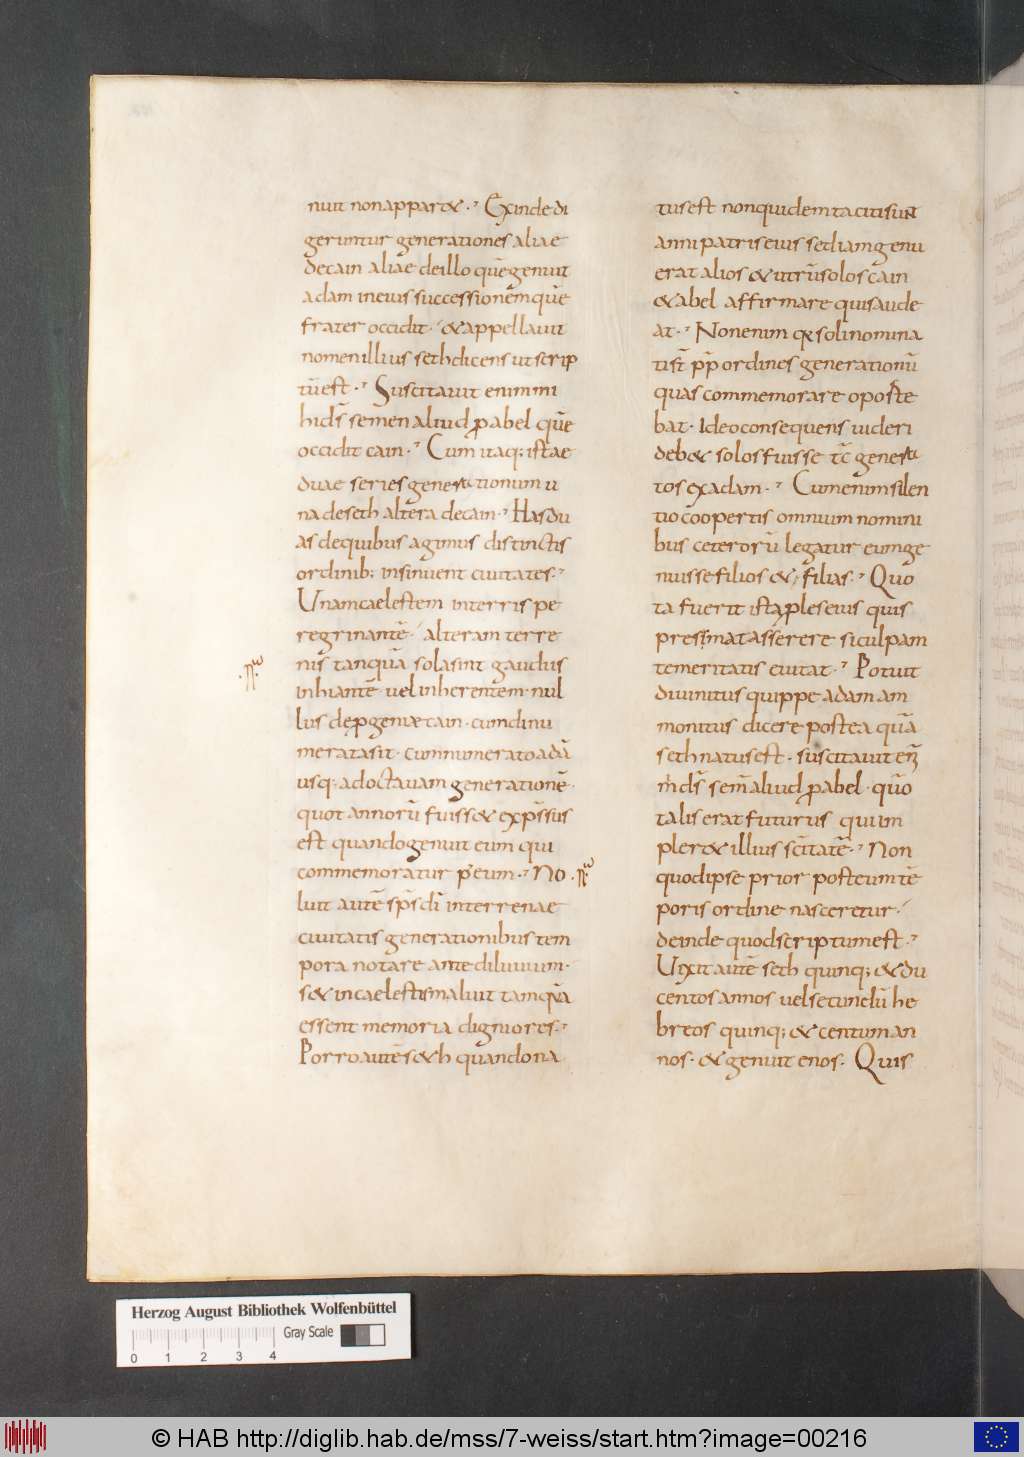 nuit non apparet·, Exinde di
geruntur generationes aliae
decain aliae deillo quē genuit
adam ineius successionem quē
frater occidit· & appellauit
nomen illius seth dicens ut scrip
tū est·, Suscitauit enim mi
hi ds̄ semen aliud ꝓ abel quē
occidit cain·, Cum itaq; istae
duae series generationum u
na deseth altera decain·, Has du
as dequibus agimus distinctis
ordinib; insinuent ciuitates·,
Unam caelestem interris pe
regrinantē· alteram terre
nis tanquā solasint gaudiis
inhiantē uel inherentem· nul
lus de ꝓgeniae cain· cum dinu
merata sit· cum numerato adā
usq; ad octauam generationē·
quot annorū fuiss& exp̄ssus
est quando genuit eum qui
commemoratur p̄ eum·, No
luit autē sp̄s dī interrenae
ciuitatis generationibus tem
pora notare ante diluuium·
s& in caelestis maluit tamquā
essent memoria digniores·,
Porro autē s&h quando na
tus est non quidem tacitisunt
anni patris eius sed iam genu
erat alios & utrū solos cain
& abel affirmare quis aude
at·, Non enim q̄ soli nomina
tis̄t pp̄ ordines generationū
quas commemorare oporte
bat· Ideo consequens uideri
deb& solos fuisse tc̄ genera
tos exadam·, Cum enim silen
tio coopertis omnium nomini
bus ceterorū legatur eum ge
nuisse filios & filias·, Quo
ta fuerit ista ples eius quis
presumat asserere si culpam
temeritatis euitat·, Potuit
diuinitus quippe adam am
monitus dicere postea quā
seth natus est· suscitauit em̄
m̄ ds̄ sem̄ aliud ꝓ abel· qūo
talis erat futurus qui im
pler& illius sc̄itatē·, Non
quod ipse prior posteum tē
poris ordine nasceretur·
deinde quod scriptum est·,
Uixit autē seth quinq; & du
centos annos uel secundū he
breos quinq; & centum an
nos· & genuit enos· Quis
Herzog August Bibliothek Wolfenbüttel
Gray Scale
0 1 2 3 4
© HAB http://diglib.hab.de/mss/7-weiss/start.htm?image=00216